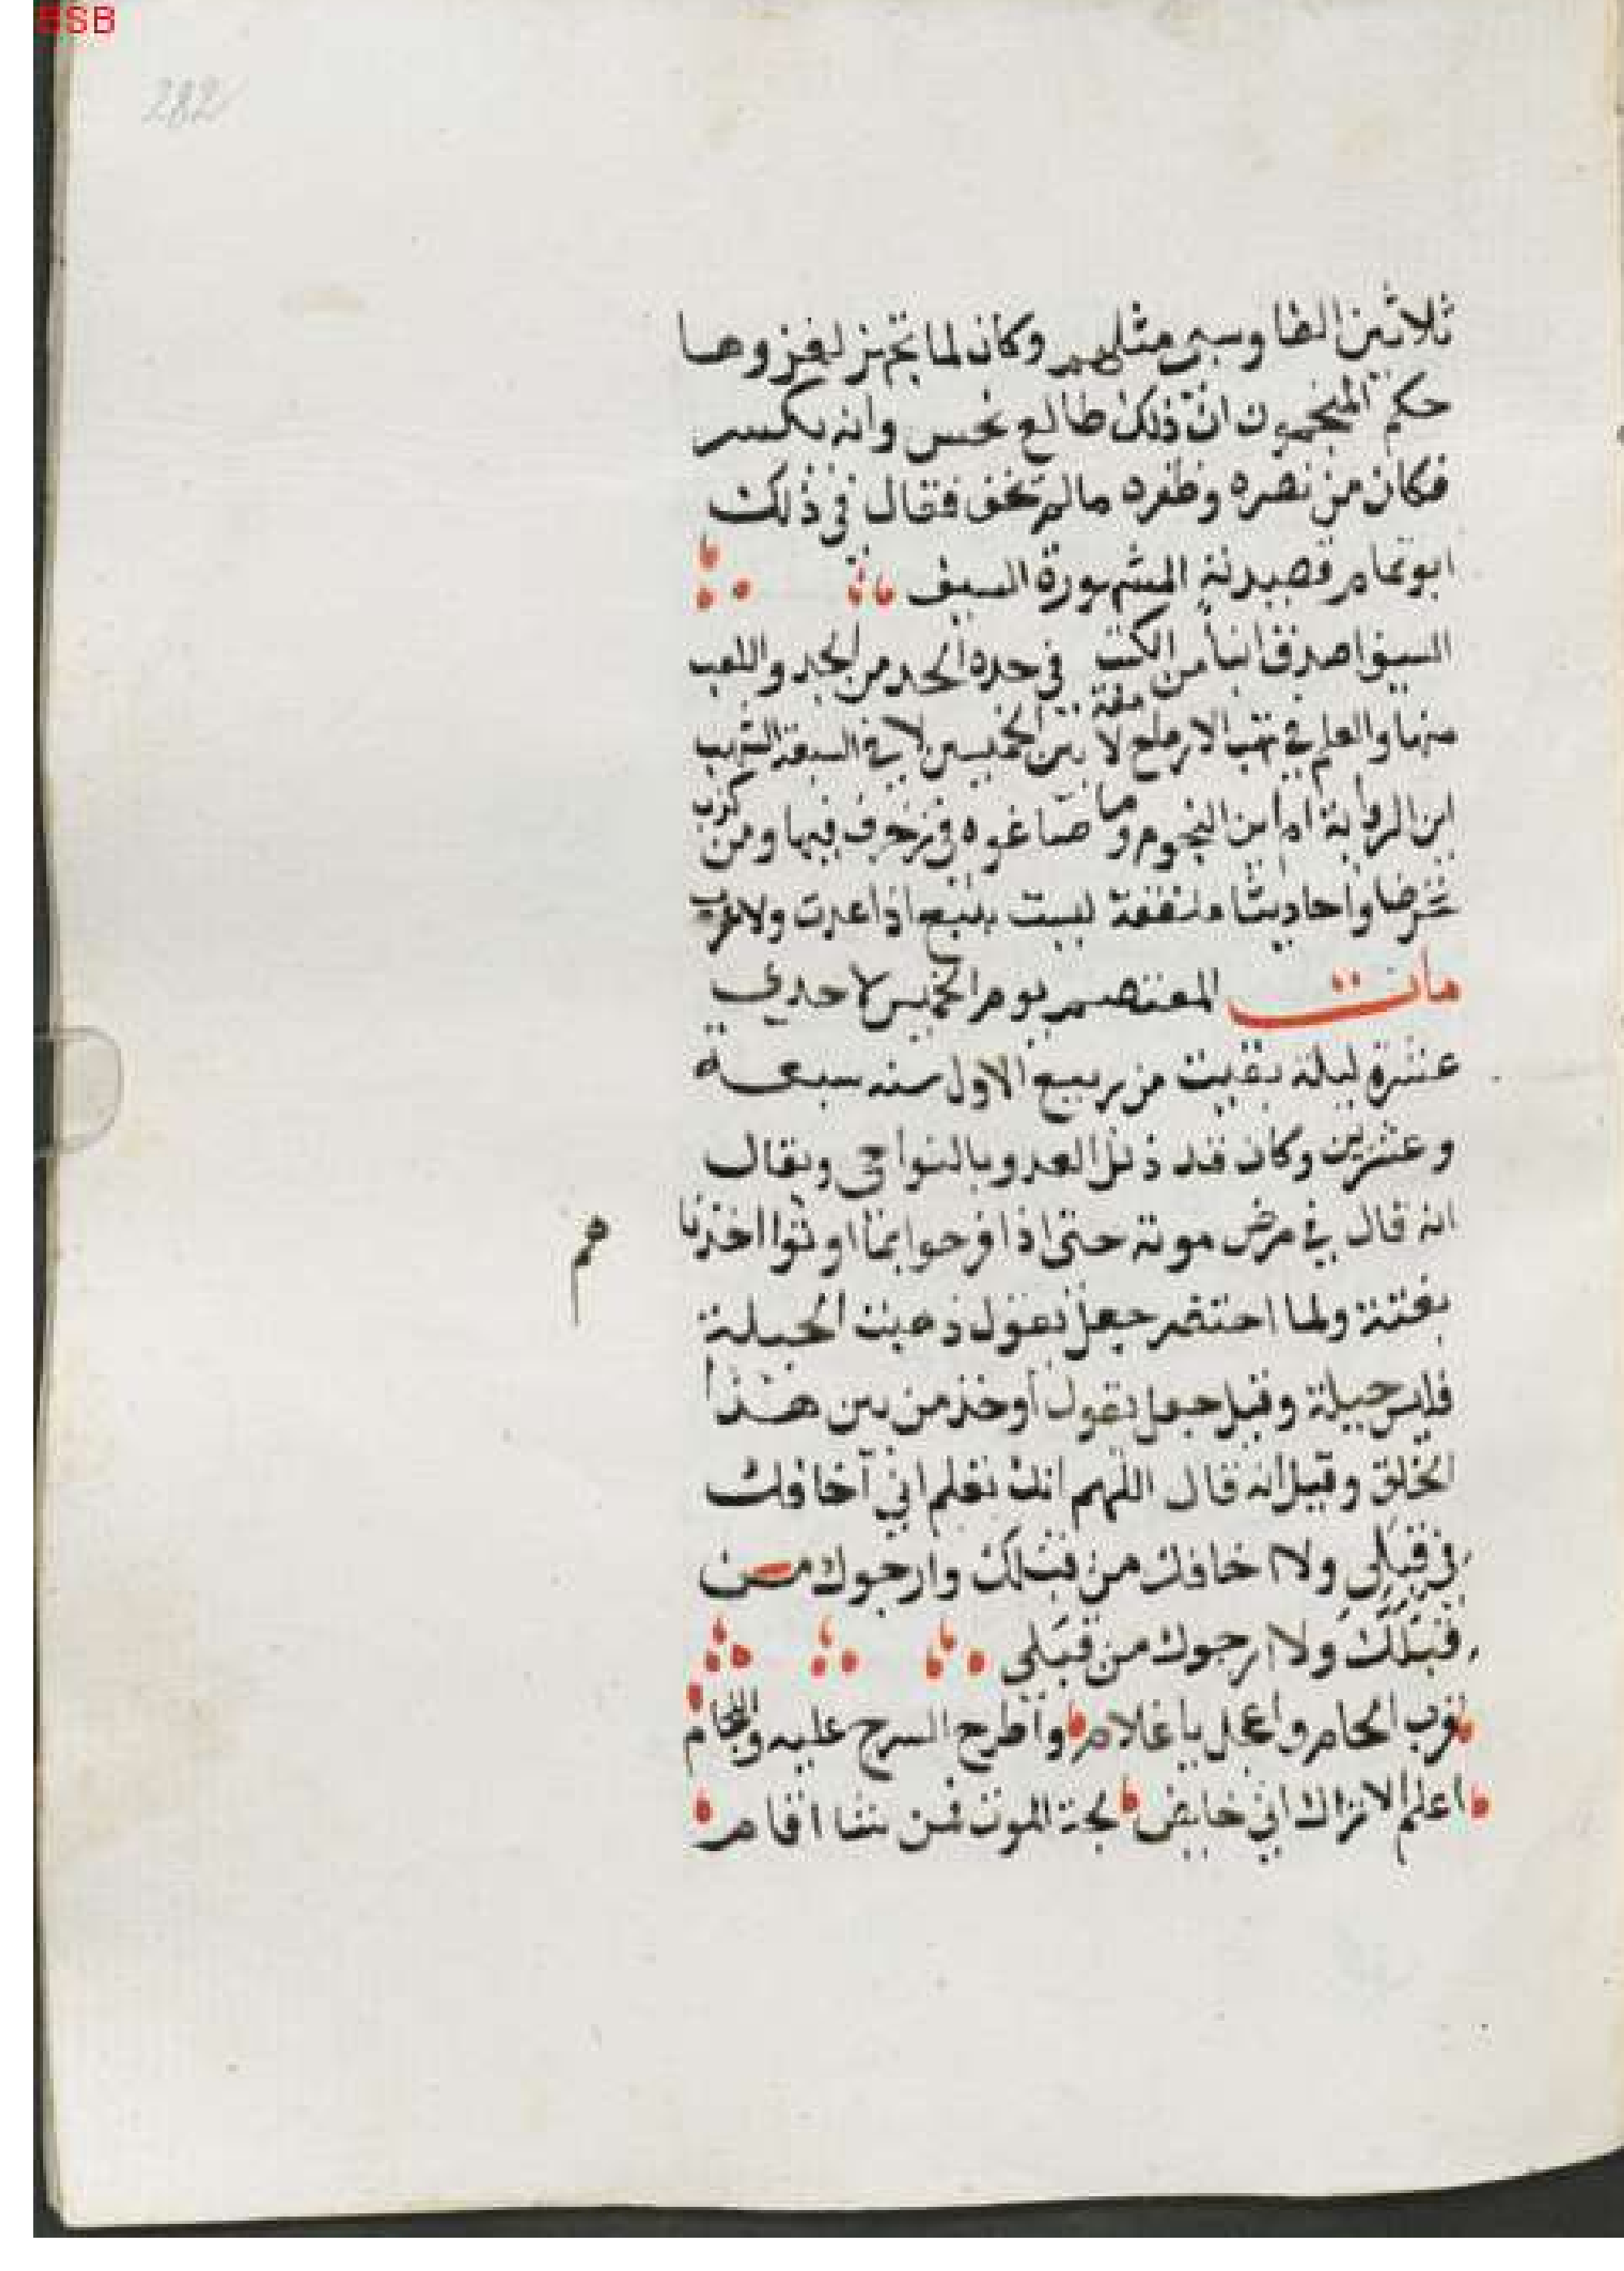 BSB
282
ثلاثين الفا وسبى مثلهم وكان لما تجهز لغزوها
حكم المنجمون ان ذلك طالع نحس وانه يكسر
فكان من نصره وظفره مالم يخف فقال في ذلك
ابو تمام قصيدته المشهورة السيف
السيف اصدق انباً من الكتب في حده الحد من الجد واللعب
منها والعلم في شهب الارماح لامعة بين الخميسين لا في السبعة الشهب
اين الرواية ام اين النجوم وما صاغوه في زخرف فيها ومن كذب
تخرصا واحاديثا ملفقة ليست بنبع اذا عدت ولا غرب
مات المعتصم يوم الخميس لاحدي
عشرة ليلة بقيت من ربيع الاول سنه سبعة
وعشرين وكان قد ذلل العدو بالنواحي ويقال
انه قال في مرض موته حتى اذا فرحوا بما اوتوا اخذنا
هم
بغتة ولما احتضر جعل يقول ذهبت الحيلة
فليس حيلة وقيل جعل يقول أوخذ من بين هذا
الخلق وقيل انه قال اللهم انك تعلم اني آخافك
من قبلي ولا اخافك من قبلك وارجوك من
قبلك ولا ارجوك من قبلي
قرب الحام واعجل يا غلام واطرح السرج عليه والجام
اعلم الاتراك اني خايض لجة الموت فمن شا اقام